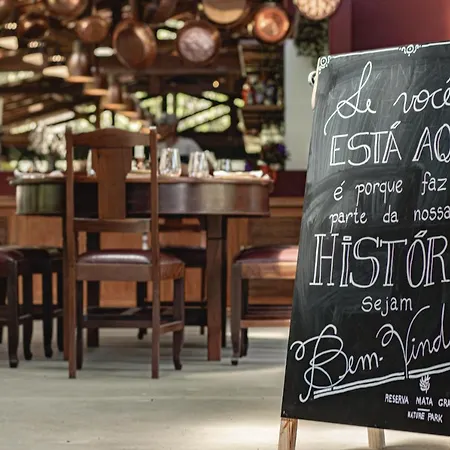 Se você
ESTÁ AQ
é porque faz
parte da nossa
HISTÓR
Sejam
Bem-Vind
RESERVA MATA GR
NATURE PARK